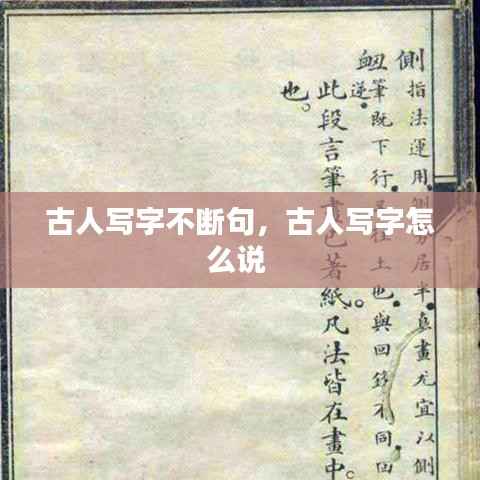 古人写字不断句，古人写字怎
么说
側指法運用側勿居半真畫尤宜以側
衄筆既下行
逆
此段言筆畫已著紙凡法皆在畫中
也。